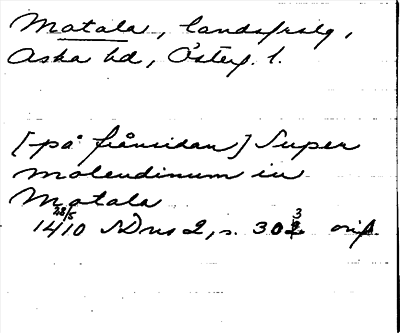 Motala, landsfrslg,
Aska hd, Österg. l.
[på frånsidan] Super
molendinum in
Motala
28/5
1410 SDns 2, s. 303 orig.